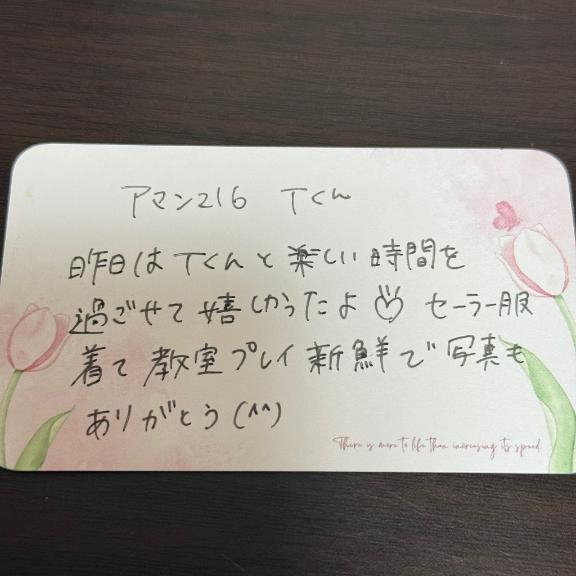 アマン216 Tくん
昨日はTくんと楽しい時間を
過ごせて嬉しかったよ♡ セーラー服
着て 教室プレイ 新鮮で 写真も
ありがとう(^^)
There is more to life than increasing its speed.